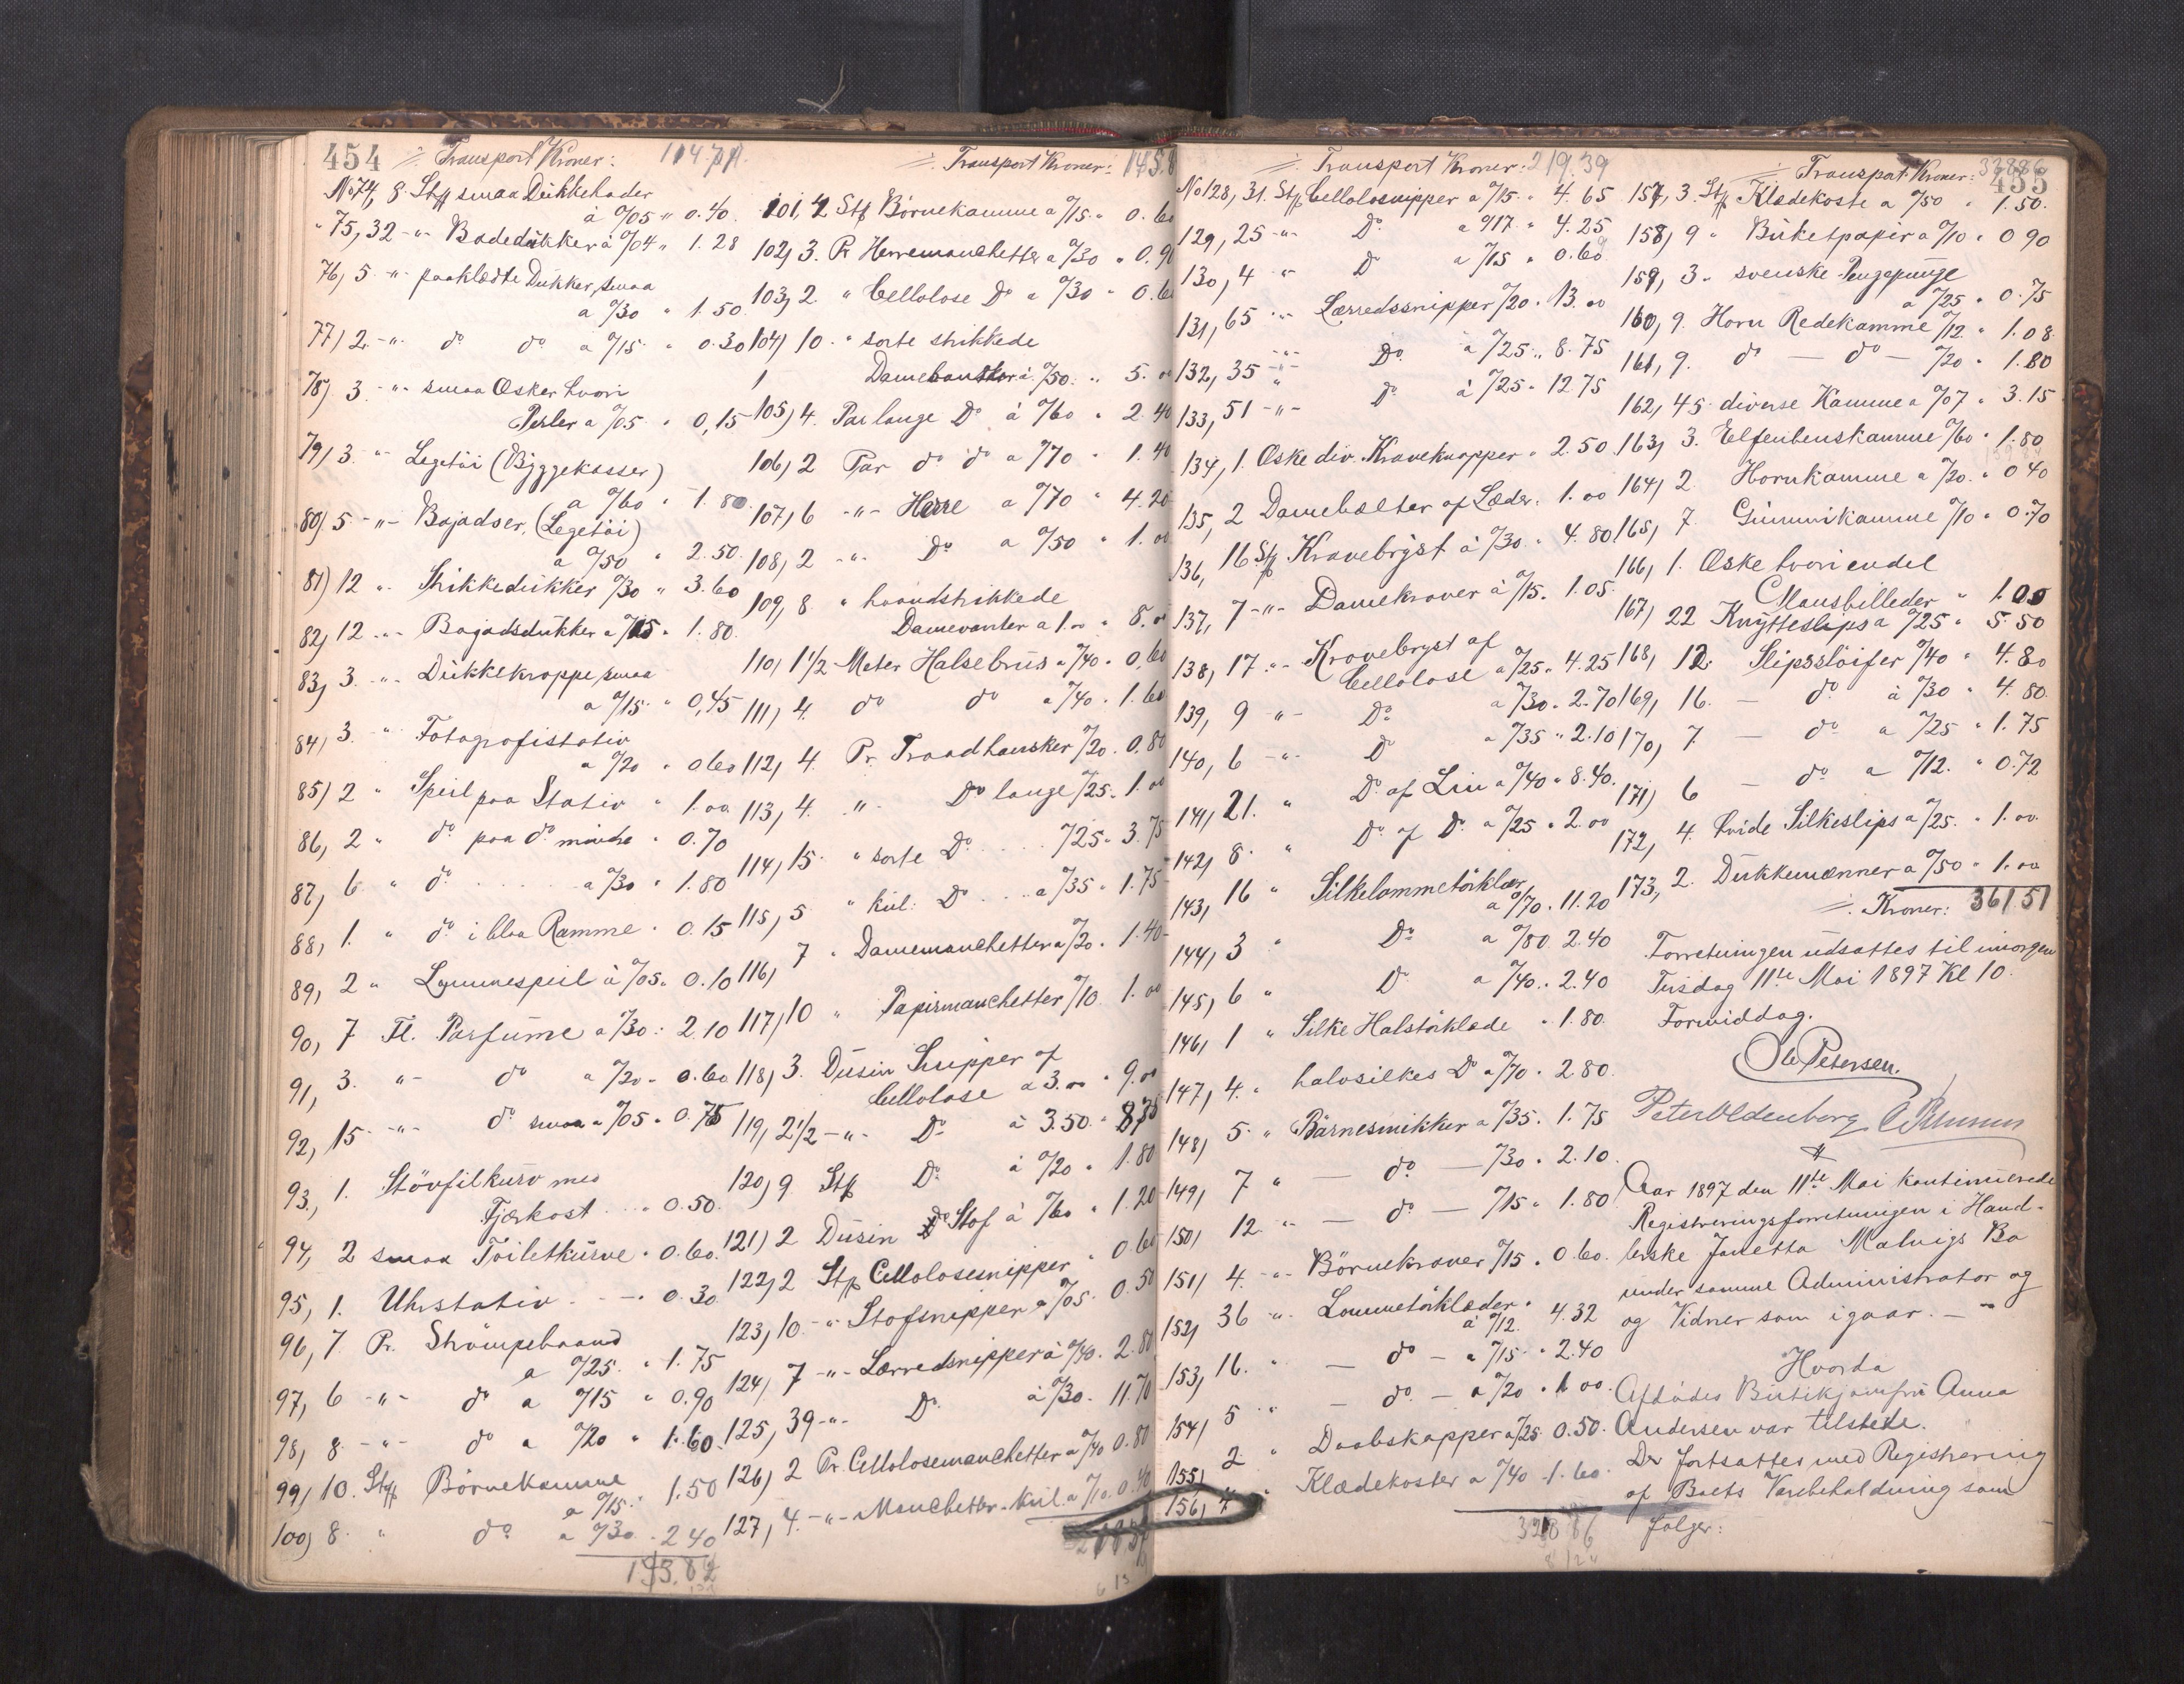 454
Transport Kroner:
No 74, 8 Stk smaa Dükkehoder
à 0/05 " 0.40.
" 75, 32 -"- Badedükker à 0/04 " 1.28
76, 5 -"- paaklædte Dükker, smaa
a 0/30 " 1.50
77, 2 -"- do do a 0/15 " 0.30
78, 3 -"- smaa Æsker hvori
Perler a 0/05 " 0,15
79, 3 " Legetöi (Byggekasser)
a 0/60 " 1.80
80, 5 -"- Bajadser, (Legetöi)
a 0/50 " 2.50
81, 12 " Strikkedükker 0/30 " 3.60
82, 12 -"- Bajadsdükker a 0/15 " 1.80.
83, 3 -"- Dükkekroppe, smaa
a 0/15 " 0,45
84, 3 " Fotografistativ
a 0/20 " 0.60
85, 2 " Speil paa Stativ " 1.00
86, 2 " do paa do mindre " 0.70
87, 6 " do a 0/30 " 1.80
88, 1 " do i blaa Ramme " 0.15
89, 2 " Lommespeil à 0/05 " 0.10
90, 7 Fl. Parfüme a 0/30 : 2.10
91, 3 -"- do a 0/20 " 0.60
92, 15 -"- do smaa a 0/05 " 0.75
93, 1. Stövfilkurv med
Fjærkost " 0.50
94, 2 smaa Toiletkürve " 0.60.
95, 1. Uhrstativ " 0.30
96, 7 Pr. Strömpebaand
a 0/25 " 1.75
97, 6 -"- do a 0/15 " 0.90
98, 8 -"- do a 0/20 " 1.60
99, 10. Stk Börnekamme
a 0/15 " 1.50
100, 8 " do a 0/30 " 2.40
Transport Kroner:
101, 4 Stk Börnekamme a 0/15 " 0.60
102, 3. Pr Herremanchetter a 0/30 " 0.90
103, 2 " Cellolose Do a 0/30 " 0.60
104, 10 " sorte strikkede
a 0/50 " 5.00
105, 4. Par lange Do à 0/60 " 2.40
106, 2 Par do do a 0/70 " 1.40
107, 6 -"- Herre a 0/70 " 4.20
108, 2 -"- Do a 0/50 " 1.00
109, 8 " haandstrikkede
Damevanter a 1.00 " 8.00
110, 1 1/2 Meter Halsebrüs a 0/40 " 0,60
111, 4. do do a 0/40 " 1.60
112, 4. Pr. Traadhansker 0/20 " 0.80
113, 4. " Do lange 0/25 " 1.00
114, 15 " sorte Do 0/25 " 3.75
115, 5 " kul: Do a 0/35 " 1.75
116, 7 " Damemanchetter a 0/20 " 1.40
117, 10 " Papirmanchetter 0/10 1.00
118, 3. Düsin Snipper af
Cellolose a 3.00 " 9.00
119, 2 1/2 -"- Do à 3.50 " 8 75
120, 9 Stk Do à 0/20 " 1.80
121, 2 Düsin Do Stof à 0/60 " 1.20
122, 2 Stk Cellolosesnipper " 0.60
123, 10 -"- Stofsnipper a 0/05 " 0.50
124, 7 -"- Lærredsnipper à 0/40 " 2.80
125, 39 -"- Do à 0/30 " 11.70
126, 2 Pr. Cellolosemanchetter a 0/40 0.80
127, 4. -"- Manchetter kul. a 0/10 0.40
Transport Kroner: 219.39
No 128, 31. Stk Cellolosnipper a 0/15 " 4.65
129, 25 -"- Do a 0/17 " 4.25
130, 4 -"- Do a 0/15 " 0.60
131, 65 -"- Lærredssnipper 0/20 " 13.00
132, 35 -"- Do à 0/25 " 8.75
133, 51 -"- Do à 0/25 " 12.75
134, 1. Æske div. Kraveknapper " 2.50
135, 2 Damebælter af Læder. 1.00
136, 16 Stk Kravebrÿst à 0/30 " 4.80
137, 7 -"- Damekraver à 0/15. 1.05.
138, 17 -"- Kravebryst af
Cellolose a 0/25 " 4.25
139, 9 -"- Do a 0/30 " 2.70
140, 6 -"- Do a 0/35 " 2.10
141, 21. " Do af Lin a 0/40 " 8.40.
142, 8 " Do af Do a 0/25 " 2.00
143, 16 " Silkelommetörklær
a 0/70 " 11.20
144, 3 " Do a 0/80 2.40
145, 6 " Do a 0/40 " 2.40
146, 1 " Silke Halstörklæde " 1.80.
147, 4. " halvsilkes Do a 0/70 " 2.80.
148, 5 " Barnesmikker a 0/35 " 1.75
149, 7 " — do — 0/30 " 2.10.
150, 12 " — do — 0/15 " 1.80
151, 4 -"- Börnekraver 0/15 " 0.60.
152, 36 -"- Lommetörklæder "
à 0/12. 4.32
153, 16. " — do — a 0/15 " 2.40
154, 5 " — do — a 0/20 " 1 00
155, 2 " Daabskapper a 0/25 0.50.
156, 4 " Klædekoster a 0/40 - 1.60.
Transport Kroner:
455
157, 3. Stk Klædekoste a 0/50 " 1.50.
158, 9 " Büketpapir a 0/10 " 0 90
159, 3 " svenske Pengepünge
a 0/25 " 0.75
160, 9. Horn Redekamme 0/12. " 1.08
161, 9. do — do — 0/20 " 1.80
162, 45 diverse Kamme a 0/07 " 3.15
163, 3. Elfenbenskamme 0/60 " 1.80
164, 2 Hornkamme a 0/20. " 0 40
165, 7 Gümmikamme 0/10 " 0.70
166, 1. Æske hvori endel
Glansbilleder " 1.00
167, 22 Knÿtteslips a 0/25 " 5.50
168, 12. Slipssløifer 0/40 " 4.80
169, 16. — do à 0/30 " 4.80.
170, 7 — do a 0/25 " 1.75
171, 6 — do a 0/12. " 0.72
172, 4. hvide Silkeslips a 0/25. " 1.00.
173, 2. Dükkemænner a 0/50 " 1.00
Kroner: 361.51
Forretningen udsattes til imorgen
Tirsdag 11te Mai 1897 Kl 10.
Formiddag.
Ole Petersen.
Peter Oldenborg
Aar 1897 den 11te Mai kontinuerede
Registreringsforretningen i Hand-
lerske Janetta Malvigs Bo
under samme Administrator og
og Vidner som igaar. —
Hvorda
Afdödes Bütikjomfrü Anna
Andersen var tilstede.
Der fortsattes med Registrering
af Boets Varebeholdning som
følger: